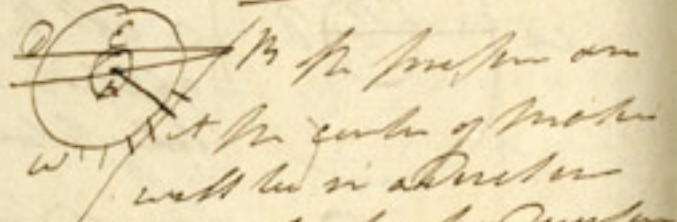 D C
B the pressure on
B
A the centre of motion
W
will be in a Direction